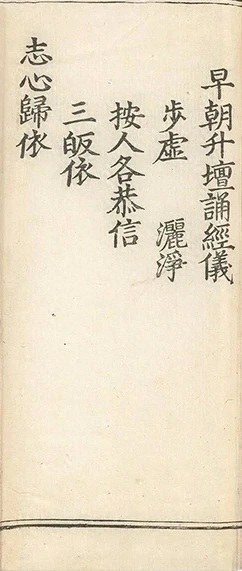 早朝升壇誦經儀
步虛　灑淨
按人各恭信
三皈依
志心歸依